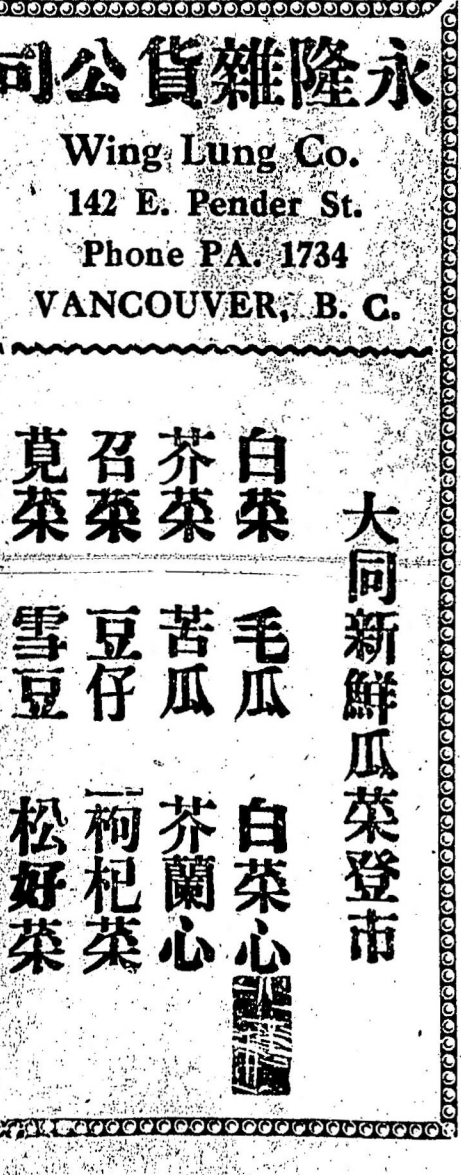 永隆雜貨公司
Wing Lung Co.
142 E. Pender St.
Phone PA. 1734
VANCOUVER, B. C.
大同新鮮瓜菜登市
白菜 毛瓜 白菜心
芥菜 苦瓜 芥蘭心
召菜 豆仔 枸杞菜
莧菜 雪豆 松好菜